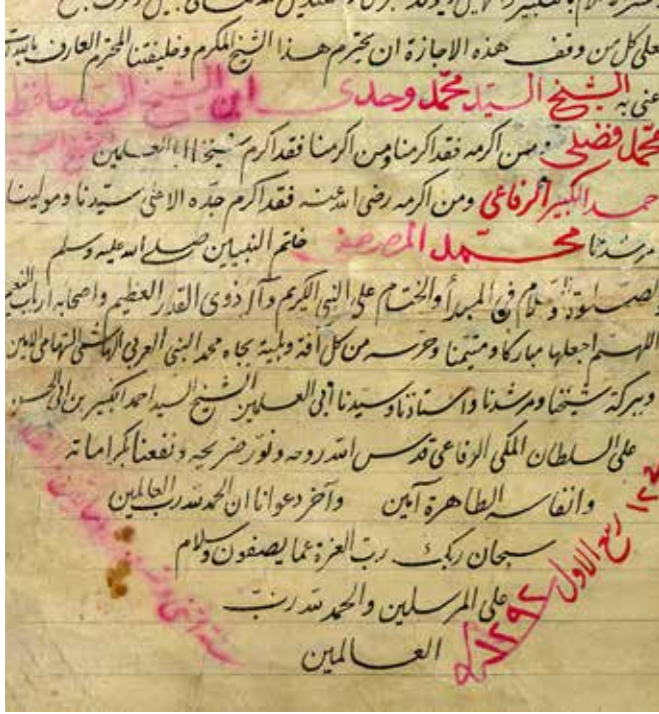 على كل من وقف هذه الاجازة ان يحترم هذا الشيخ المكرم وخليفتنا المحترم العارف بالله
عنى به الشيخ السيد محمد وحدى ابن الشيخ السيد حافظ
محمد فضلى ومن اكرمه فقد اكرمنا ومن اكرمنا فقد اكرم شيخنا ابا العلمين
احمد الكبير الرفاعى ومن اكرمه رضى الله عنه فقد اكرم جده الاعلى سيدنا ومولينا
مرشدنا محمد المصطفى خاتم النبيين صلى الله عليه وسلم
الصلوة والسلام فى المبدأ والختام على النبى الكريم وآله ذوى القدر العظيم واصحابه ارباب النعيم
اللهم اجعلها مباركا ومتيمنا وحرسه من كل آفة وبلية بجاه محمد النبى العربى الهاشمى التهامى الامين
وببركة شيخنا ومرشدنا واستاذنا وسيدنا ابى العلمين الشيخ السيد احمد الكبير بن ابى الحسن
على السلطان المكى الرفاعى قدس الله روحه ونور ضريحه ونفعنا بكراماته
وانفاسه الطاهرة آمين وآخر دعوانا ان الحمد لله رب العالمين
سبحان ربك رب العزة عما يصفون وسلام
على المرسلين والحمد لله رب
العالمين
ربيع الاول
١٢٩٢